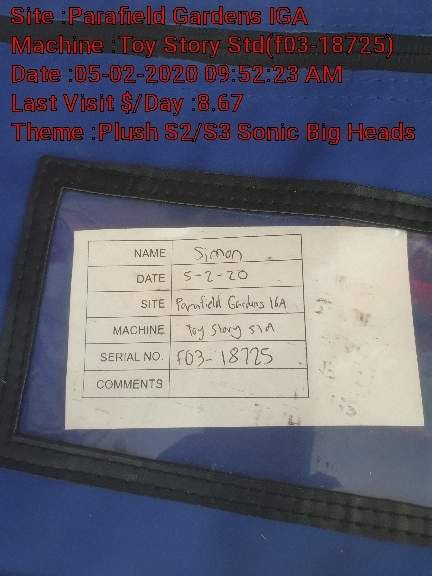 Site :Parafield Gardens IGA
Machine :Toy Story Std(f03-18725)
Date :05-02-2020 09:52:23 AM
Last Visit $/Day :8.67
Theme :Plush S2/S3 Sonic Big Heads
NAME Simon
DATE 5-2-20
SITE Parafield Gardens IGA
MACHINE Toy Story STD
SERIAL NO. f03-18725
COMMENTS